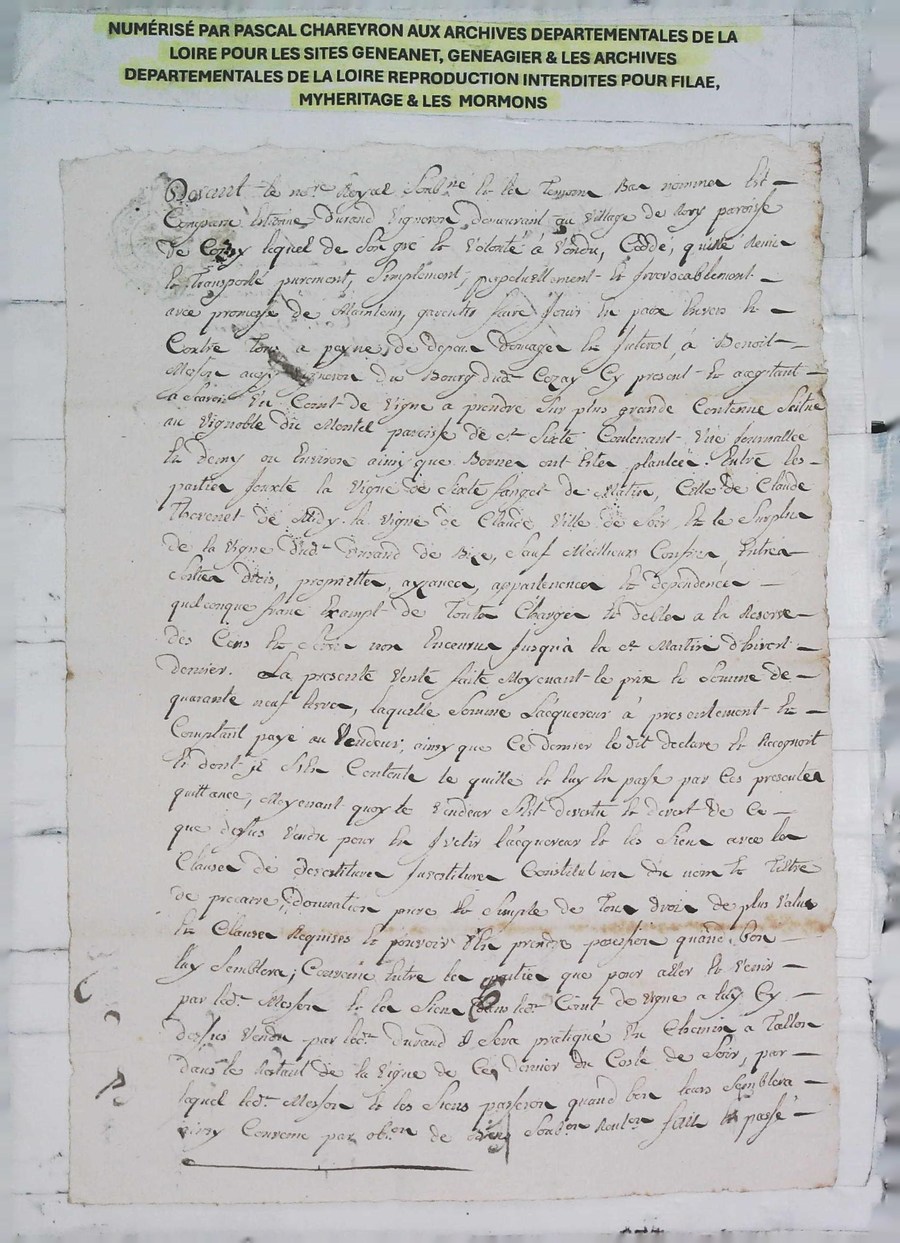 NUMÉRISÉ PAR PASCAL CHAREYRON AUX ARCHIVES DEPARTEMENTALES DE LA
LOIRE POUR LES SITES GENEANET, GENEAGIER & LES ARCHIVES
DEPARTEMENTALES DE LA LOIRE REPRODUCTION INTERDITES POUR FILAE,
MYHERITAGE & LES MORMONS
Devant le nore Royal Soubné et les Temoins Bas nommes est
Comparu Durand Vigneron demeurant au Village de paroisse
de Cezay lequel de Son gré et Volonté à Vendu, Cedé, quitté Remis
et Transporté purement, Simplement, perpetuellement et Irrevocablement
avec promesse de Maintenir, garentir faire Jouir en paix Envers et
Contre Tous a peyne de depens domages et Interest, à Benoit
aussy Vigneron du Bourg dudt Cezay Cy present et acceptant
a Scavoir Un Coint de Vigne a prendre Sur plus grande Contenue Scitue
au Vignoble du Montel paroisse de st Sixte Contenant Une Journallée
Et Demy ou Environ ainsy que Bornes ont Etées plantées Entre les
parties Jouxte la Vigne de Sixte de Matin, Celle de Claude
Thevenet de Midy la Vigne de Claude Ville de Soir Et le Surplus
de la Vigne dudt Durand de Bize, Sauf Meilleurs Confins, Entrées
Sorties Droits, proprietés, ayzances, appartenences et dependences
quelconque franc Exampt de Toutes Charges et debtes a la Reserve
des Cens et non Encourus Jusqu'à la st Martin d'hivert
dernier. La presente Vente faite Moyenant le prix et Somme de
quarante neuf livres, laquelle Somme L'acquereur à presentement Et
Comptant payé au Vendeur, ainsy que Ce dernier le dit declare et Recognoit
Et dont il S'En Contente le quitte et luy En passe par Ces presentes
quittance, Moyenant quoy le Vendeur S'Est devestu et devest de Ce
que dessus Vendu pour En Jvetir l'acquereur et les Siens avec les
Clauses de devestiture Jnvestiture Constitution du nom et Tiltre
de precaire, donnation pure et Simple de Tous droits de plus Values
Et Clauses Requises et pouvoir d'En prendre possession quand bon
luy Semblera; Convenu Entre les parties que pour aller et Venir
par ledt et les Siens dans ledt Coint de vigne a luy Cy
dessus Vendu par ledt durand Il Sera pratiqué Un Chemin à Tallon
dans le Restant de la Vigne de Ce dernier du Costé de Soir, par
lequel ledt et les Siens passeron quand bon leurs Semblera
ainsy Convenu par obon de Soubon Renton fait et passé